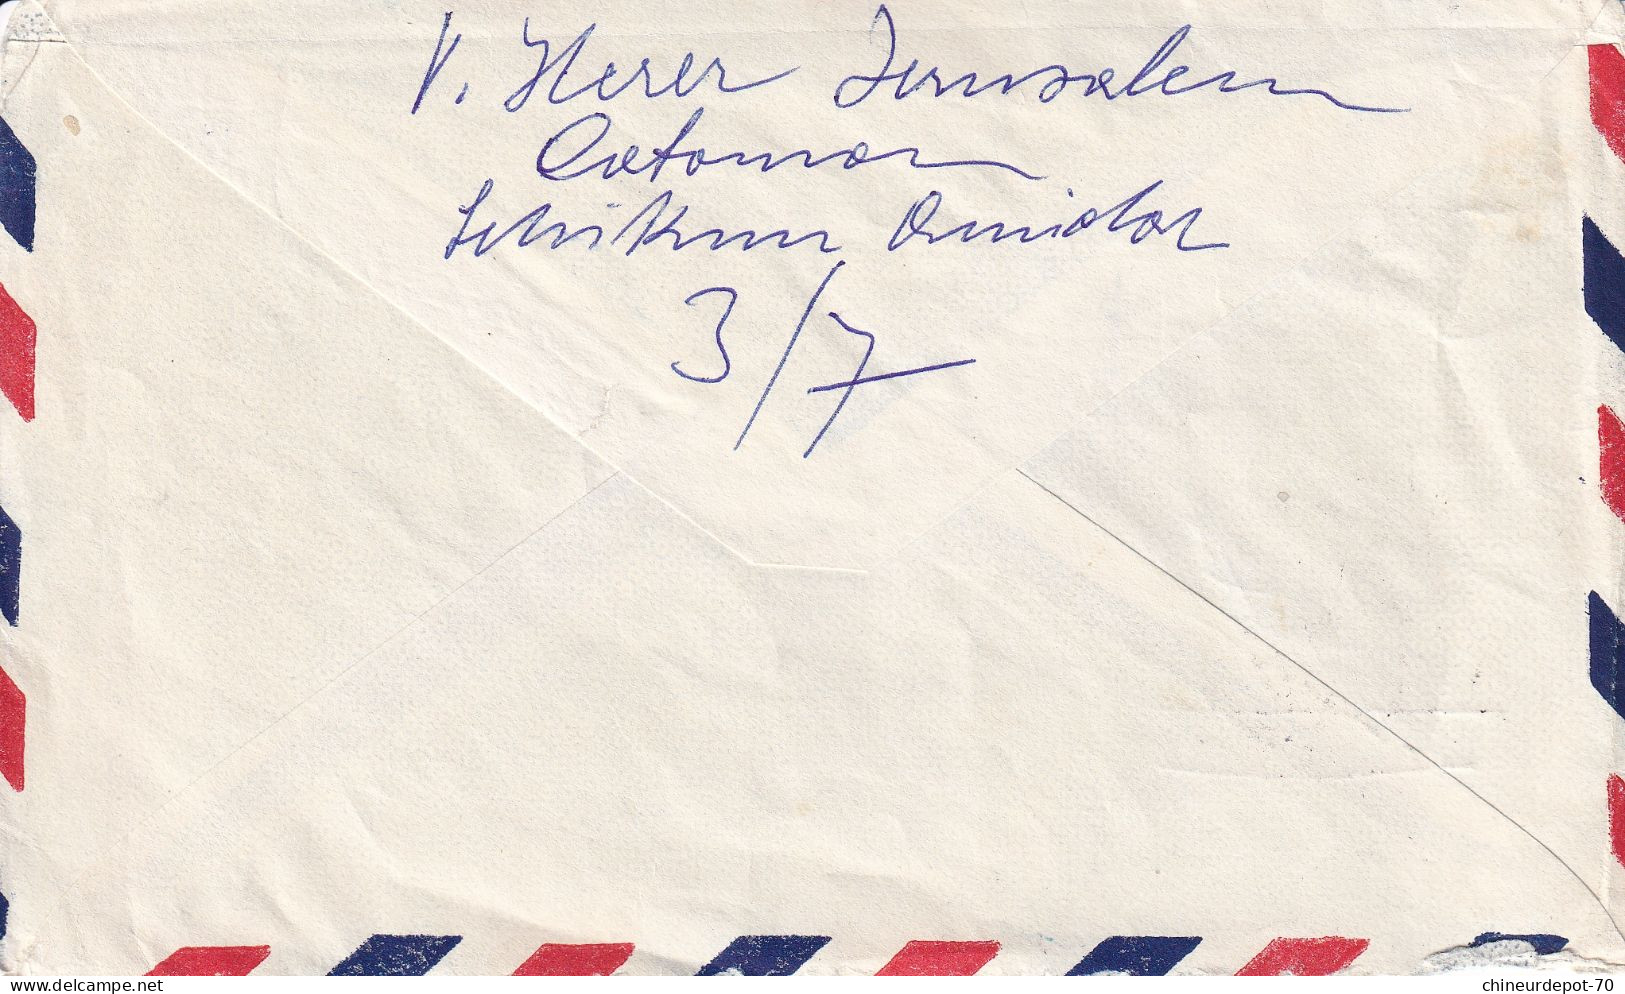 V. Herer Jerusalem
Catamon
Schikun Amidar
3/7
delcampe.net
chineurdepot-70